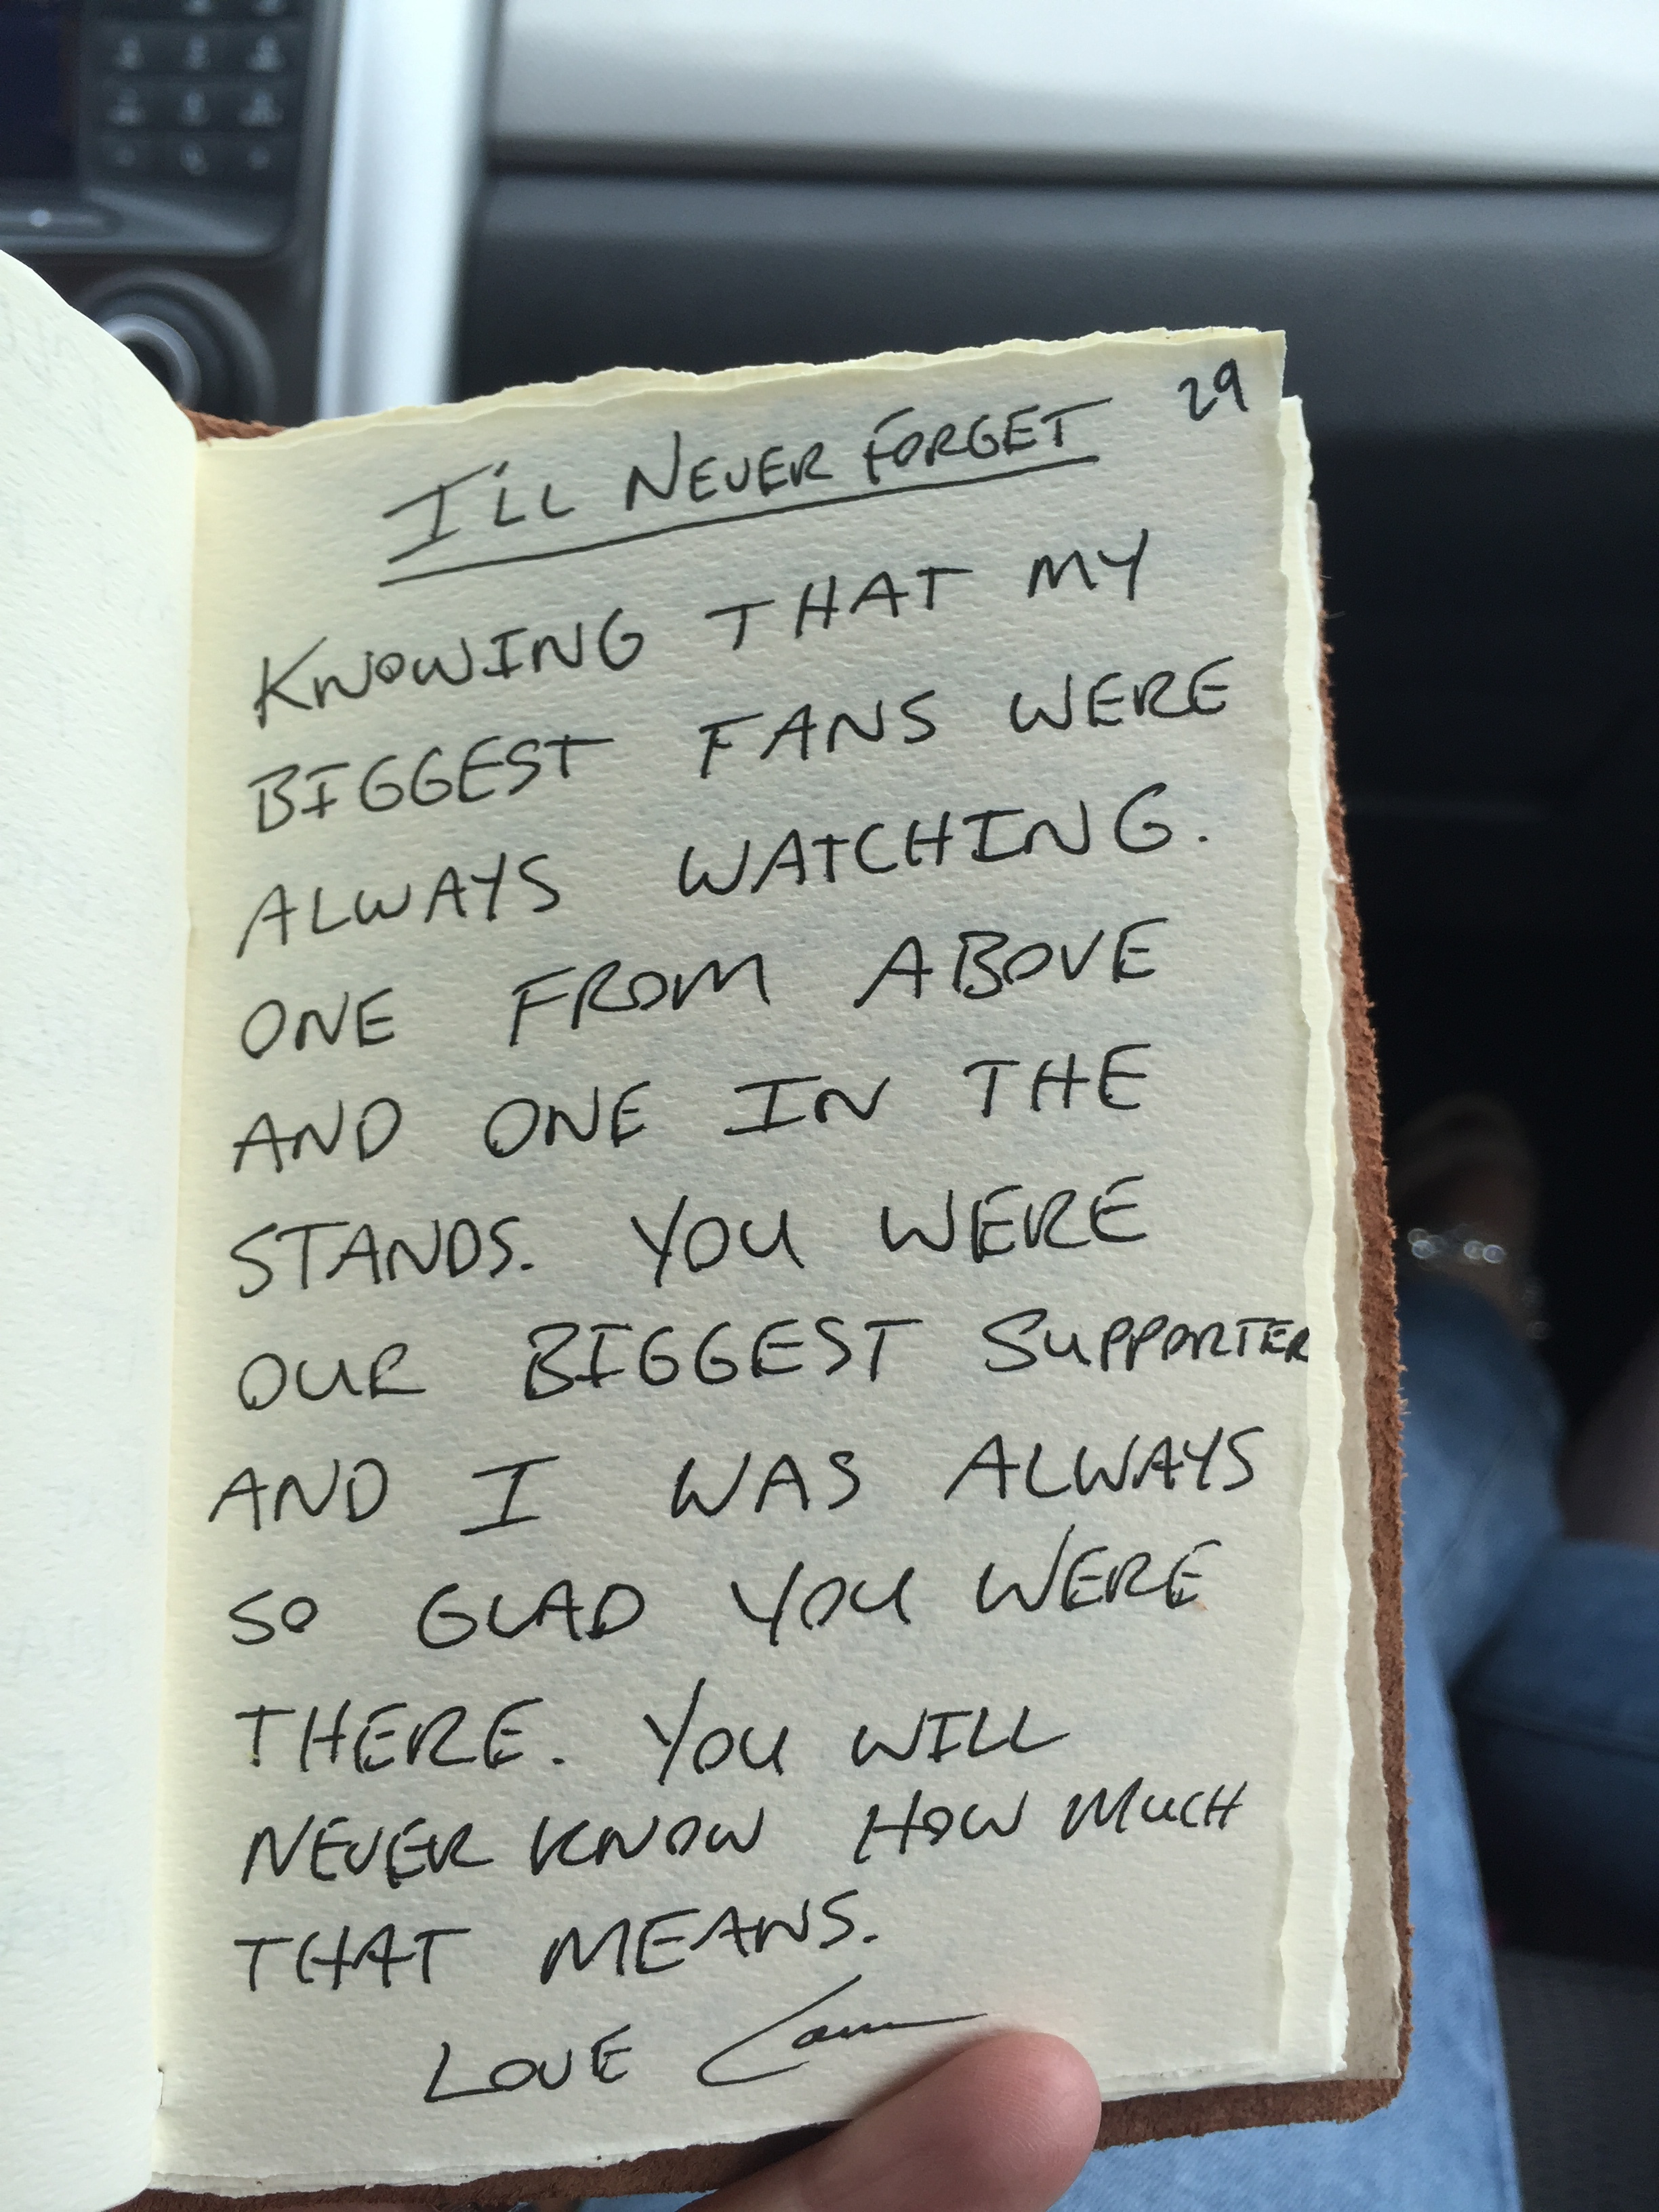 29
I'LL NEVER FORGET
KNOWING THAT MY
BIGGEST FANS WERE
ALWAYS WATCHING.
ONE FROM ABOVE
AND ONE IN THE
STANDS. YOU WERE
OUR BIGGEST SUPPORTER
AND I WAS ALWAYS
SO GLAD YOU WERE
THERE. YOU WILL
NEVER KNOW HOW MUCH
THAT MEANS.
LOVE